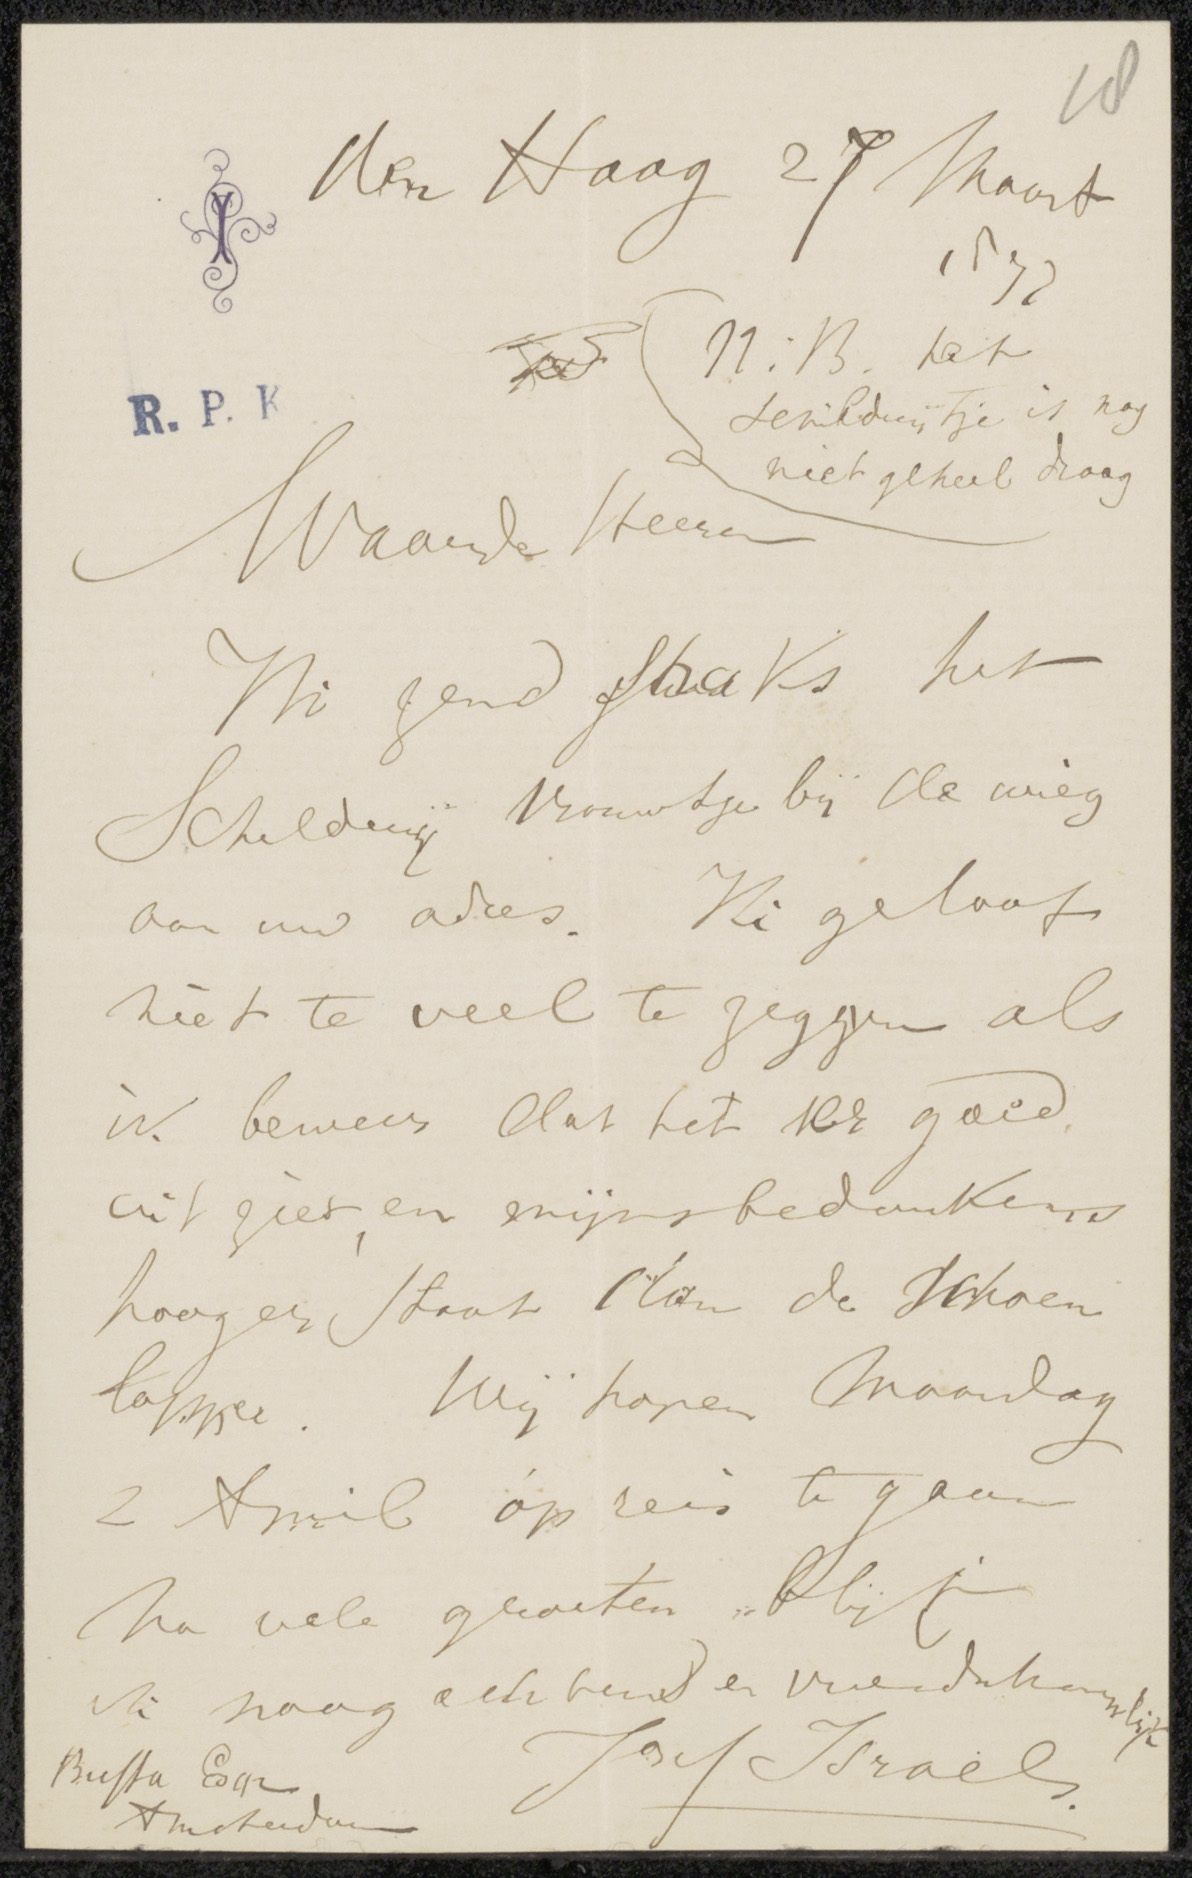 18
den Haag 27 Maart
1877
N.B. het
schilderijtje is nog
niet geheel droog
R. P. K
Waarde Heeren
Ik zend straks het
Schilderij vrouwtje bij de wieg
aan uw adres. Ik geloof
niet te veel te zeggen als
ik beweer dat het er goed
uit ziet, en mijns bedunkens
hooger staat dan de schoen
lapper. Wij hopen Maandag
2 April op reis te gaan
Na vele groeten blijf
ik hoog achtend en vriendschappelijk
Jozef Israëls.
Buffa Esqr
Amsterdam